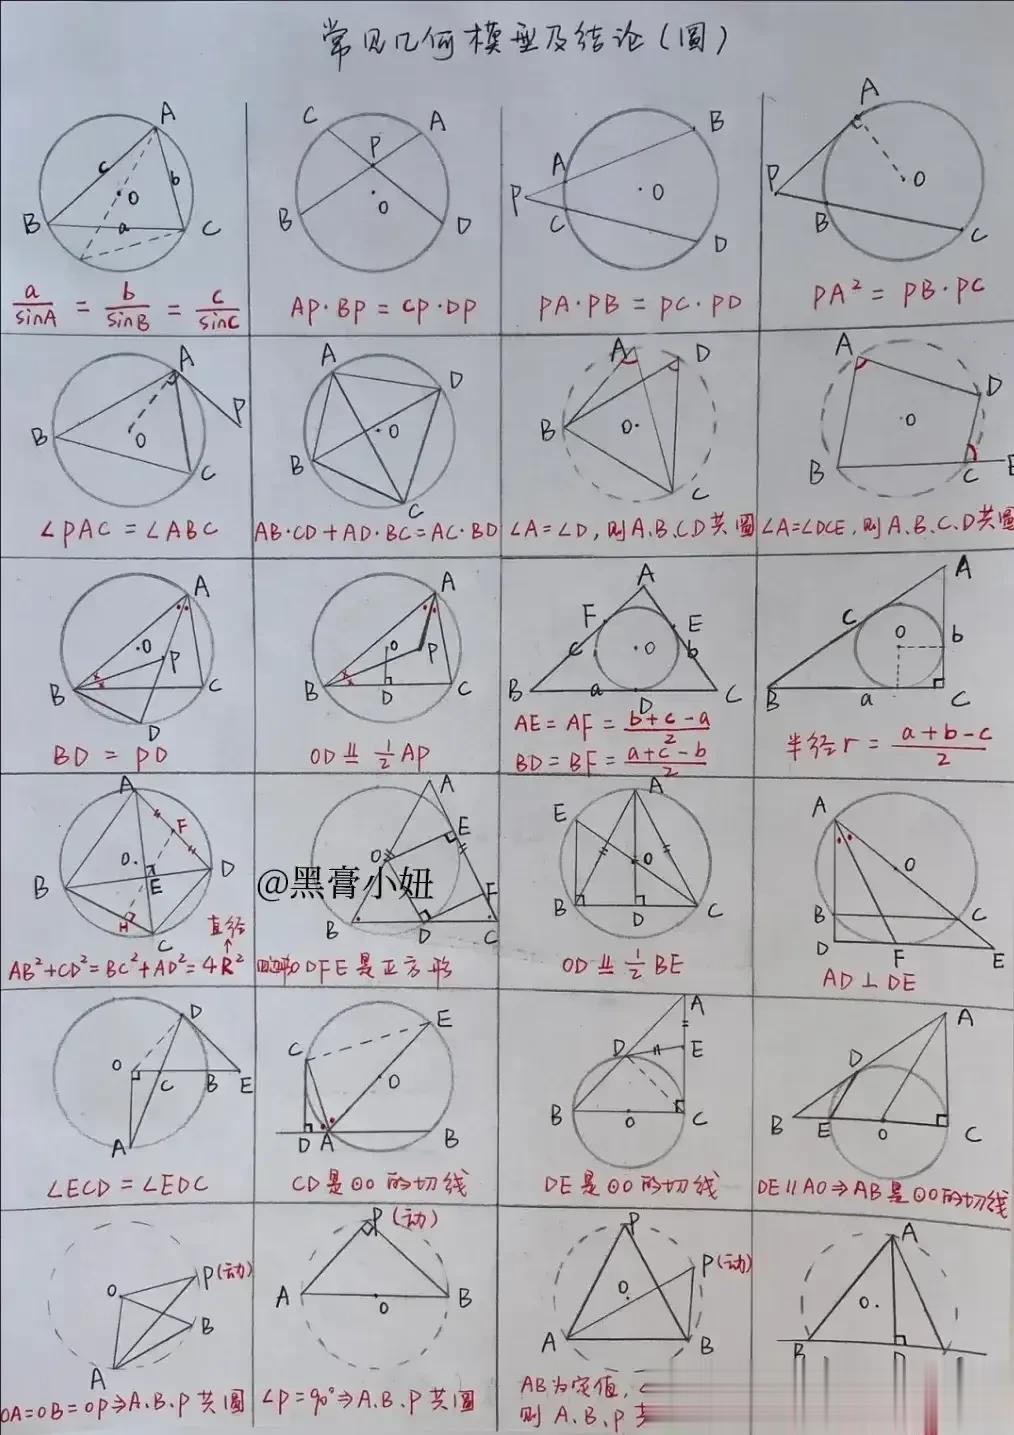 常见几何模型及结论(圆)
A
c
b
O
B
a
C
a/sinA = b/sinB = c/sinC
C
A
P
O
B
D
AP·BP=CP·DP
B
A
P
O
C
D
PA·PB=PC·PD
A
P
O
B
C
PA²=PB·PC
A
P
B
O
C
∠PAC=∠ABC
A
D
O
B
C
AB·CD+AD·BC=AC·BD
A
D
B
O
C
∠A=∠D,则A.B.C.D共圆
A
D
O
B
C
E
∠A=∠DCE,则A.B.C.D共圆
A
O
P
B
C
D
BD=PD
A
O
P
B
D
C
OD⫫½AP
A
F
E
c
O
b
B
a
D
C
AE=AF=(b+c-a)/2
BD=BF=(a+c-b)/2
A
c
O
b
B
a
C
半径r=(a+b-c)/2
A
F
O
D
B
E
H
C
直径
AB²+CD²=BC²+AD²=4R²
A
E
O
@黑膏小妞
F
B
D
C
ODFE是正方形
A
E
O
B
D
C
OD⫫½BE
A
O
B
C
D
F
E
AD⊥DE
D
O
C
B
E
A
∠ECD=∠EDC
E
C
O
D
A
B
CD是⊙O的切线
A
D
E
B
O
C
DE是⊙O的切线
A
D
B
E
O
C
DE∥AO⇒AB是⊙O的切线
P(动)
O
B
A
OA=OB=OP⇒A.B.P共圆
P(动)
A
O
B
∠P=90°⇒A.B.P共圆
P
P(动)
O
A
B
AB为定值,
则A.B.P
A
O
B
D